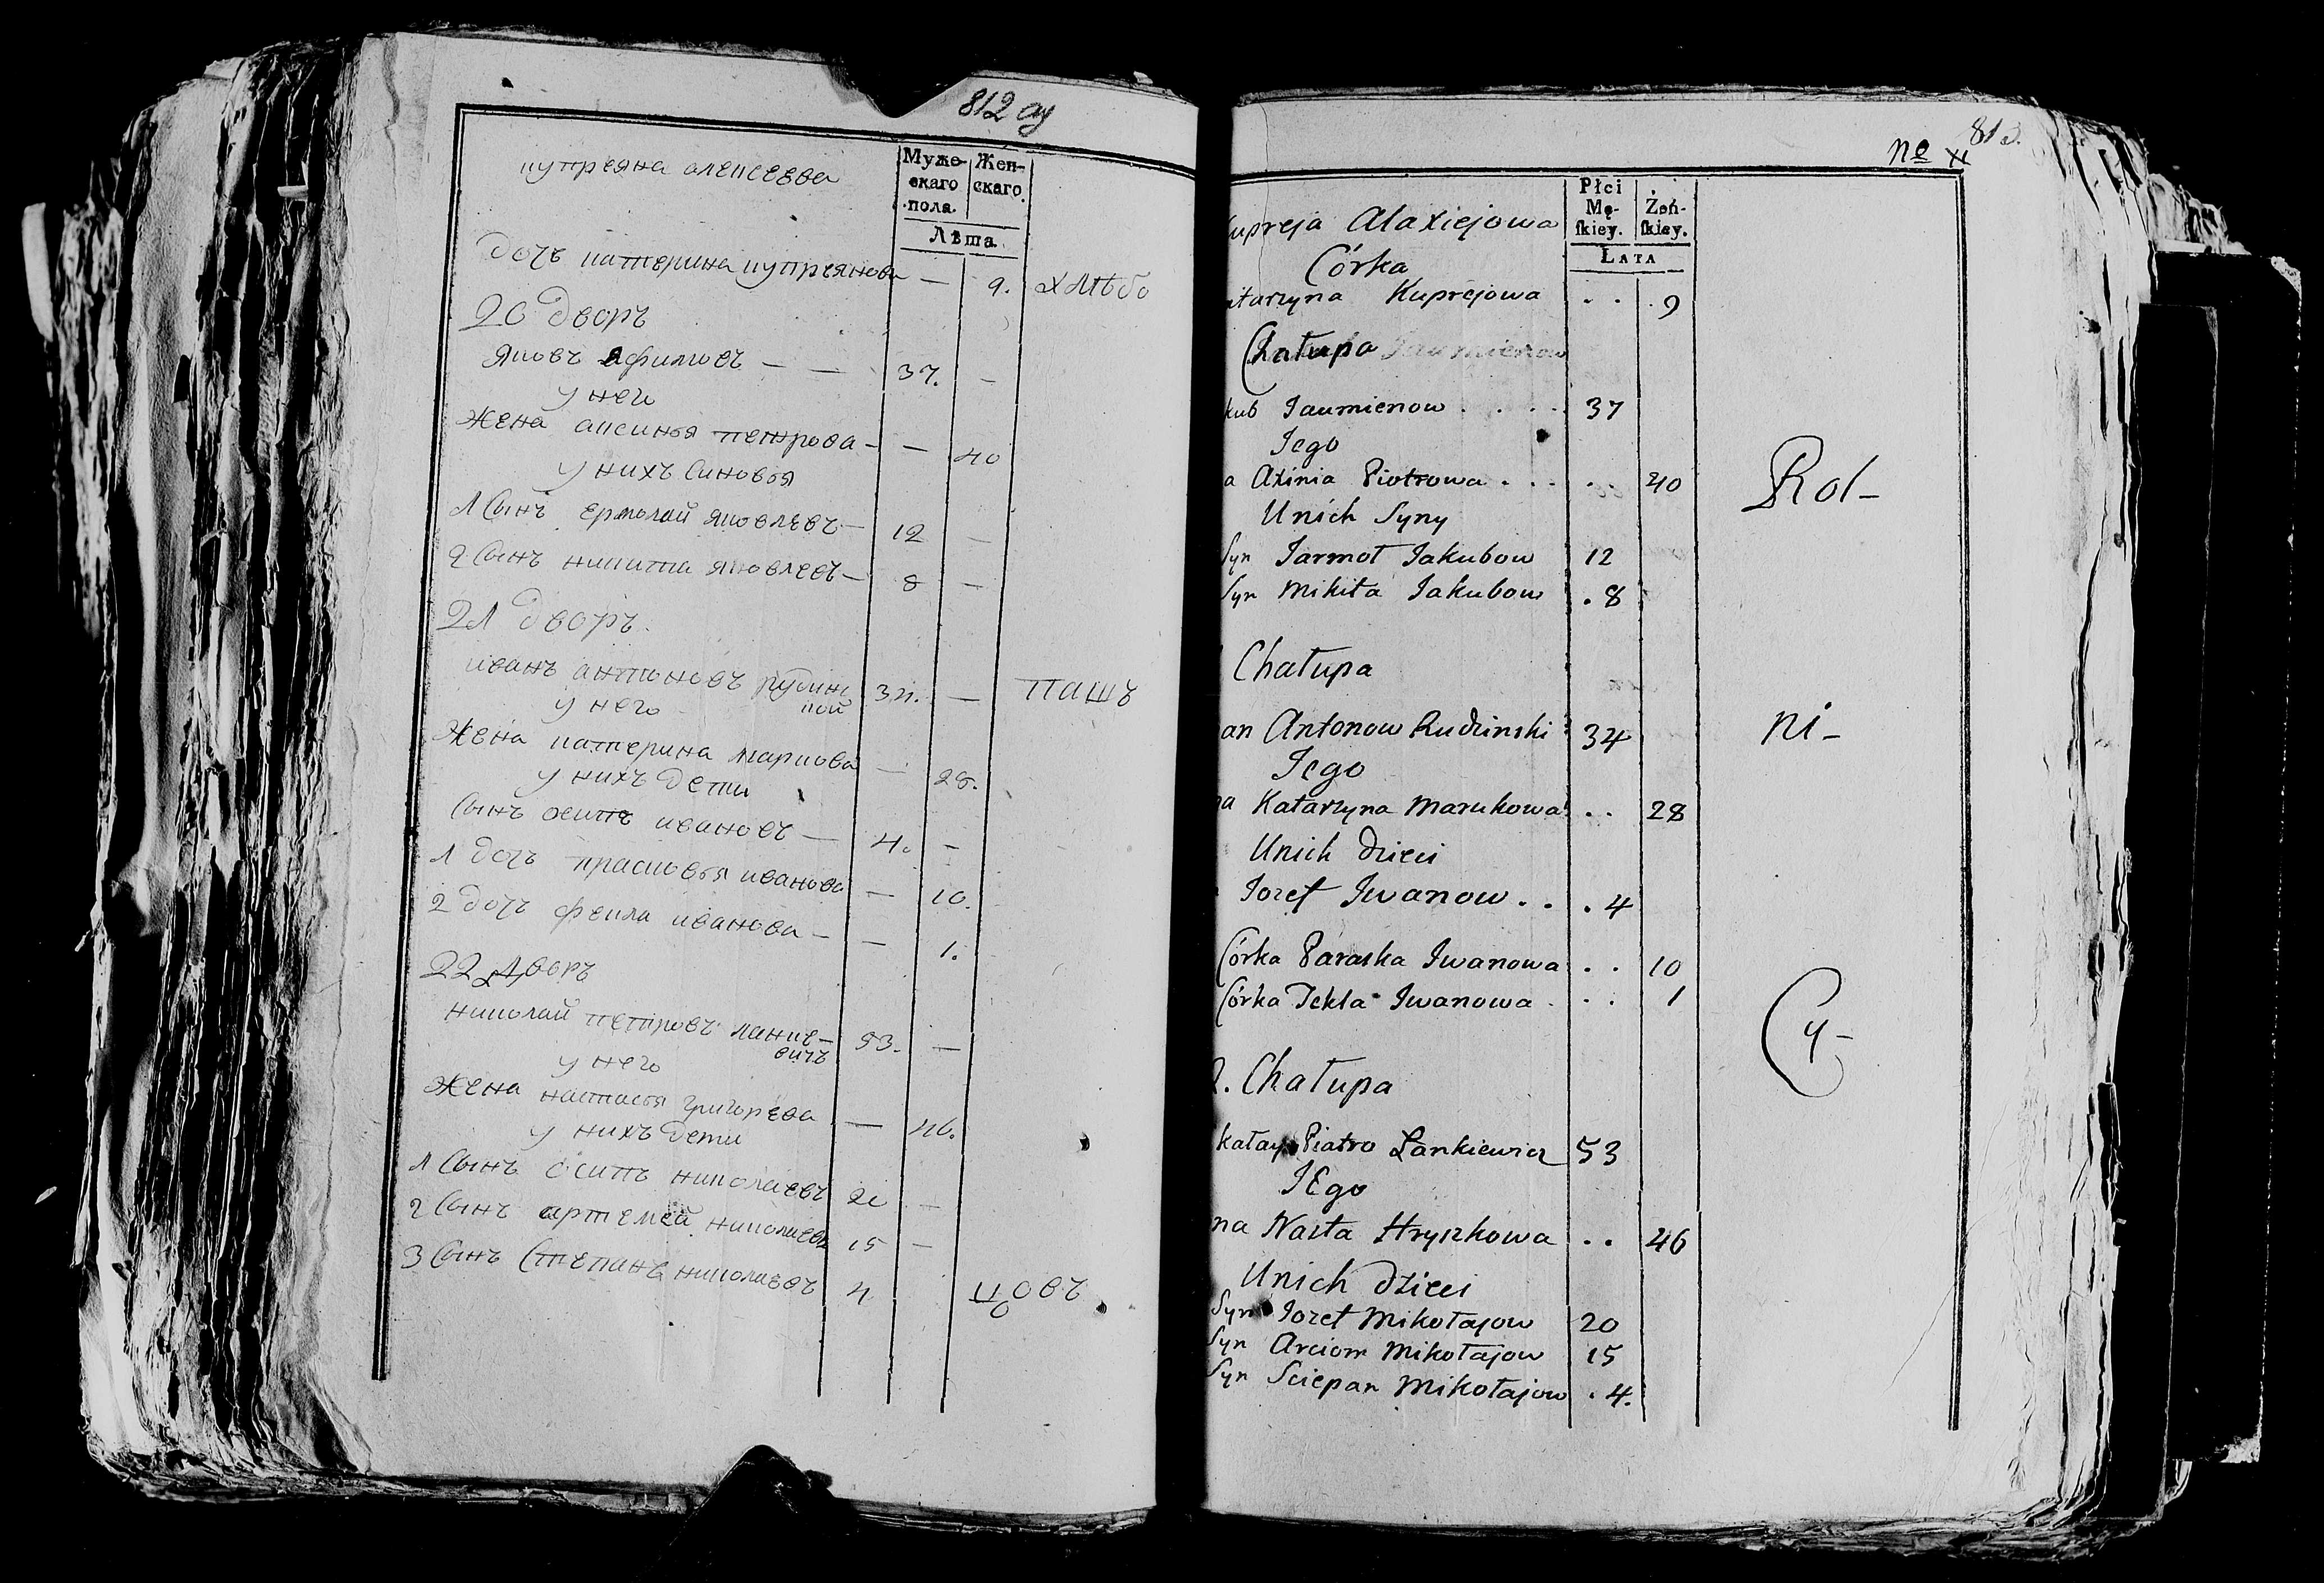 812 оу
купреяна алексеева
Муже-
скаго
пола.
Жен-
скаго.
Лѣта
дочь катерина купреянова — 9. хлѣбо
20 дворъ
яковъ яфимовъ — — 37. —
у него
жена аксинья петрова — — 40
у нихъ синовья
1 сынъ ермолай яковлевъ — 12 —
2 сынъ никита яковлевъ — 8 —
21 дворъ
иванъ антоновъ рудинс
кой 34. — пашъ
у него
жена катерина маркова — 28.
у нихъ дети
сынъ осипъ ивановъ — 4. —
1 дочь прасковья иванова — 10.
2 дочь фекла иванова — — 1.
22 дворъ
николай петровъ ланке-
вичъ 53. —
у него
жена настасья григорева — 46.
у нихъ дети
1 сынъ осипъ николаевъ 20 —
2 сынъ артемей николаевъ 15 —
3 сынъ степанъ николаевъ 4 цовъ
813.
No XI
Płci
Mę-
skiey.
Żeń-
skiey.
Lata
upreja Alaxiejowa
Córka
atarzyna Kuprejowa . . . 9
Chałupa
kub Jaumienow . . . . 37
Jego
a Axinia Piotrowa . . . . . 40
Rol-
Unich Syny
Syn Jarmoł Jakubow 12
Syn Mikita Jakubow . 8
Chałupa
an Antonow Rudzinski 34
ni-
Jego
na Katarzyna Marukowa . . 28
Unich dzieci
Jozef Iwanow . . . 4
Córka Paraska Iwanowa . . 10
Córka Tekla Iwanowa . . . 1
Cy-
2. Chałupa
kałay Piatro Lankiewicz 53
JEgo
na Nasta Hryszkowa . . 46
Unich dzieci
Syn Jozef Mikołajow 20
Syn Arciom Mikołajow 15
Syn Sciepan Mikołajow . 4.